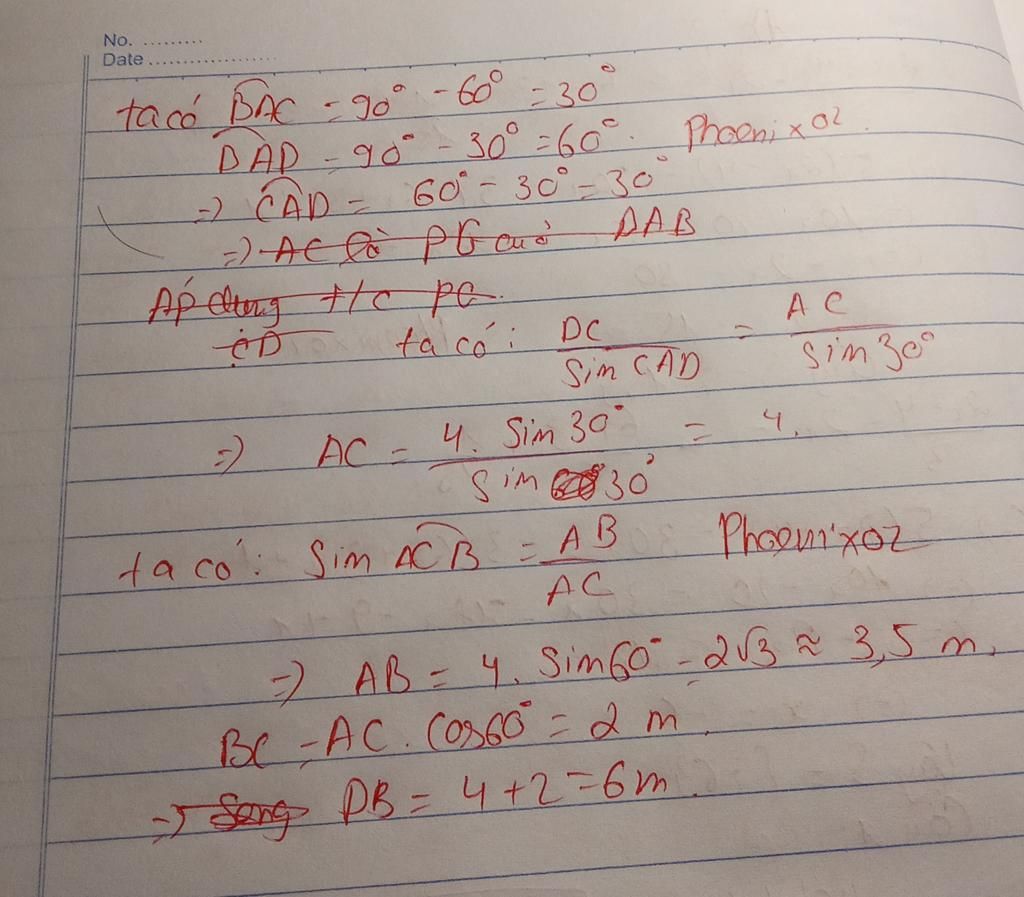 No. .........
Date ...................
ta có BAC = 90° - 60° = 30°
DAD = 90° - 30° = 60°. Phoenixoz.
=> CAD = 60° - 30° = 30°
=> AC là PG cuả DAB
Áp dụng t/c PG
CD ta có: DC / Sin CAD = AC / Sin 30°
=> AC = 4. Sin 30° / Sin 30° = 4.
ta có: Sin ACB = AB / AC Phoenixoz
=> AB = 4. Sin 60° = 2√3 ≈ 3,5 m.
BC = AC. Cos60° = 2 m.
=> Song DB = 4 + 2 = 6m.